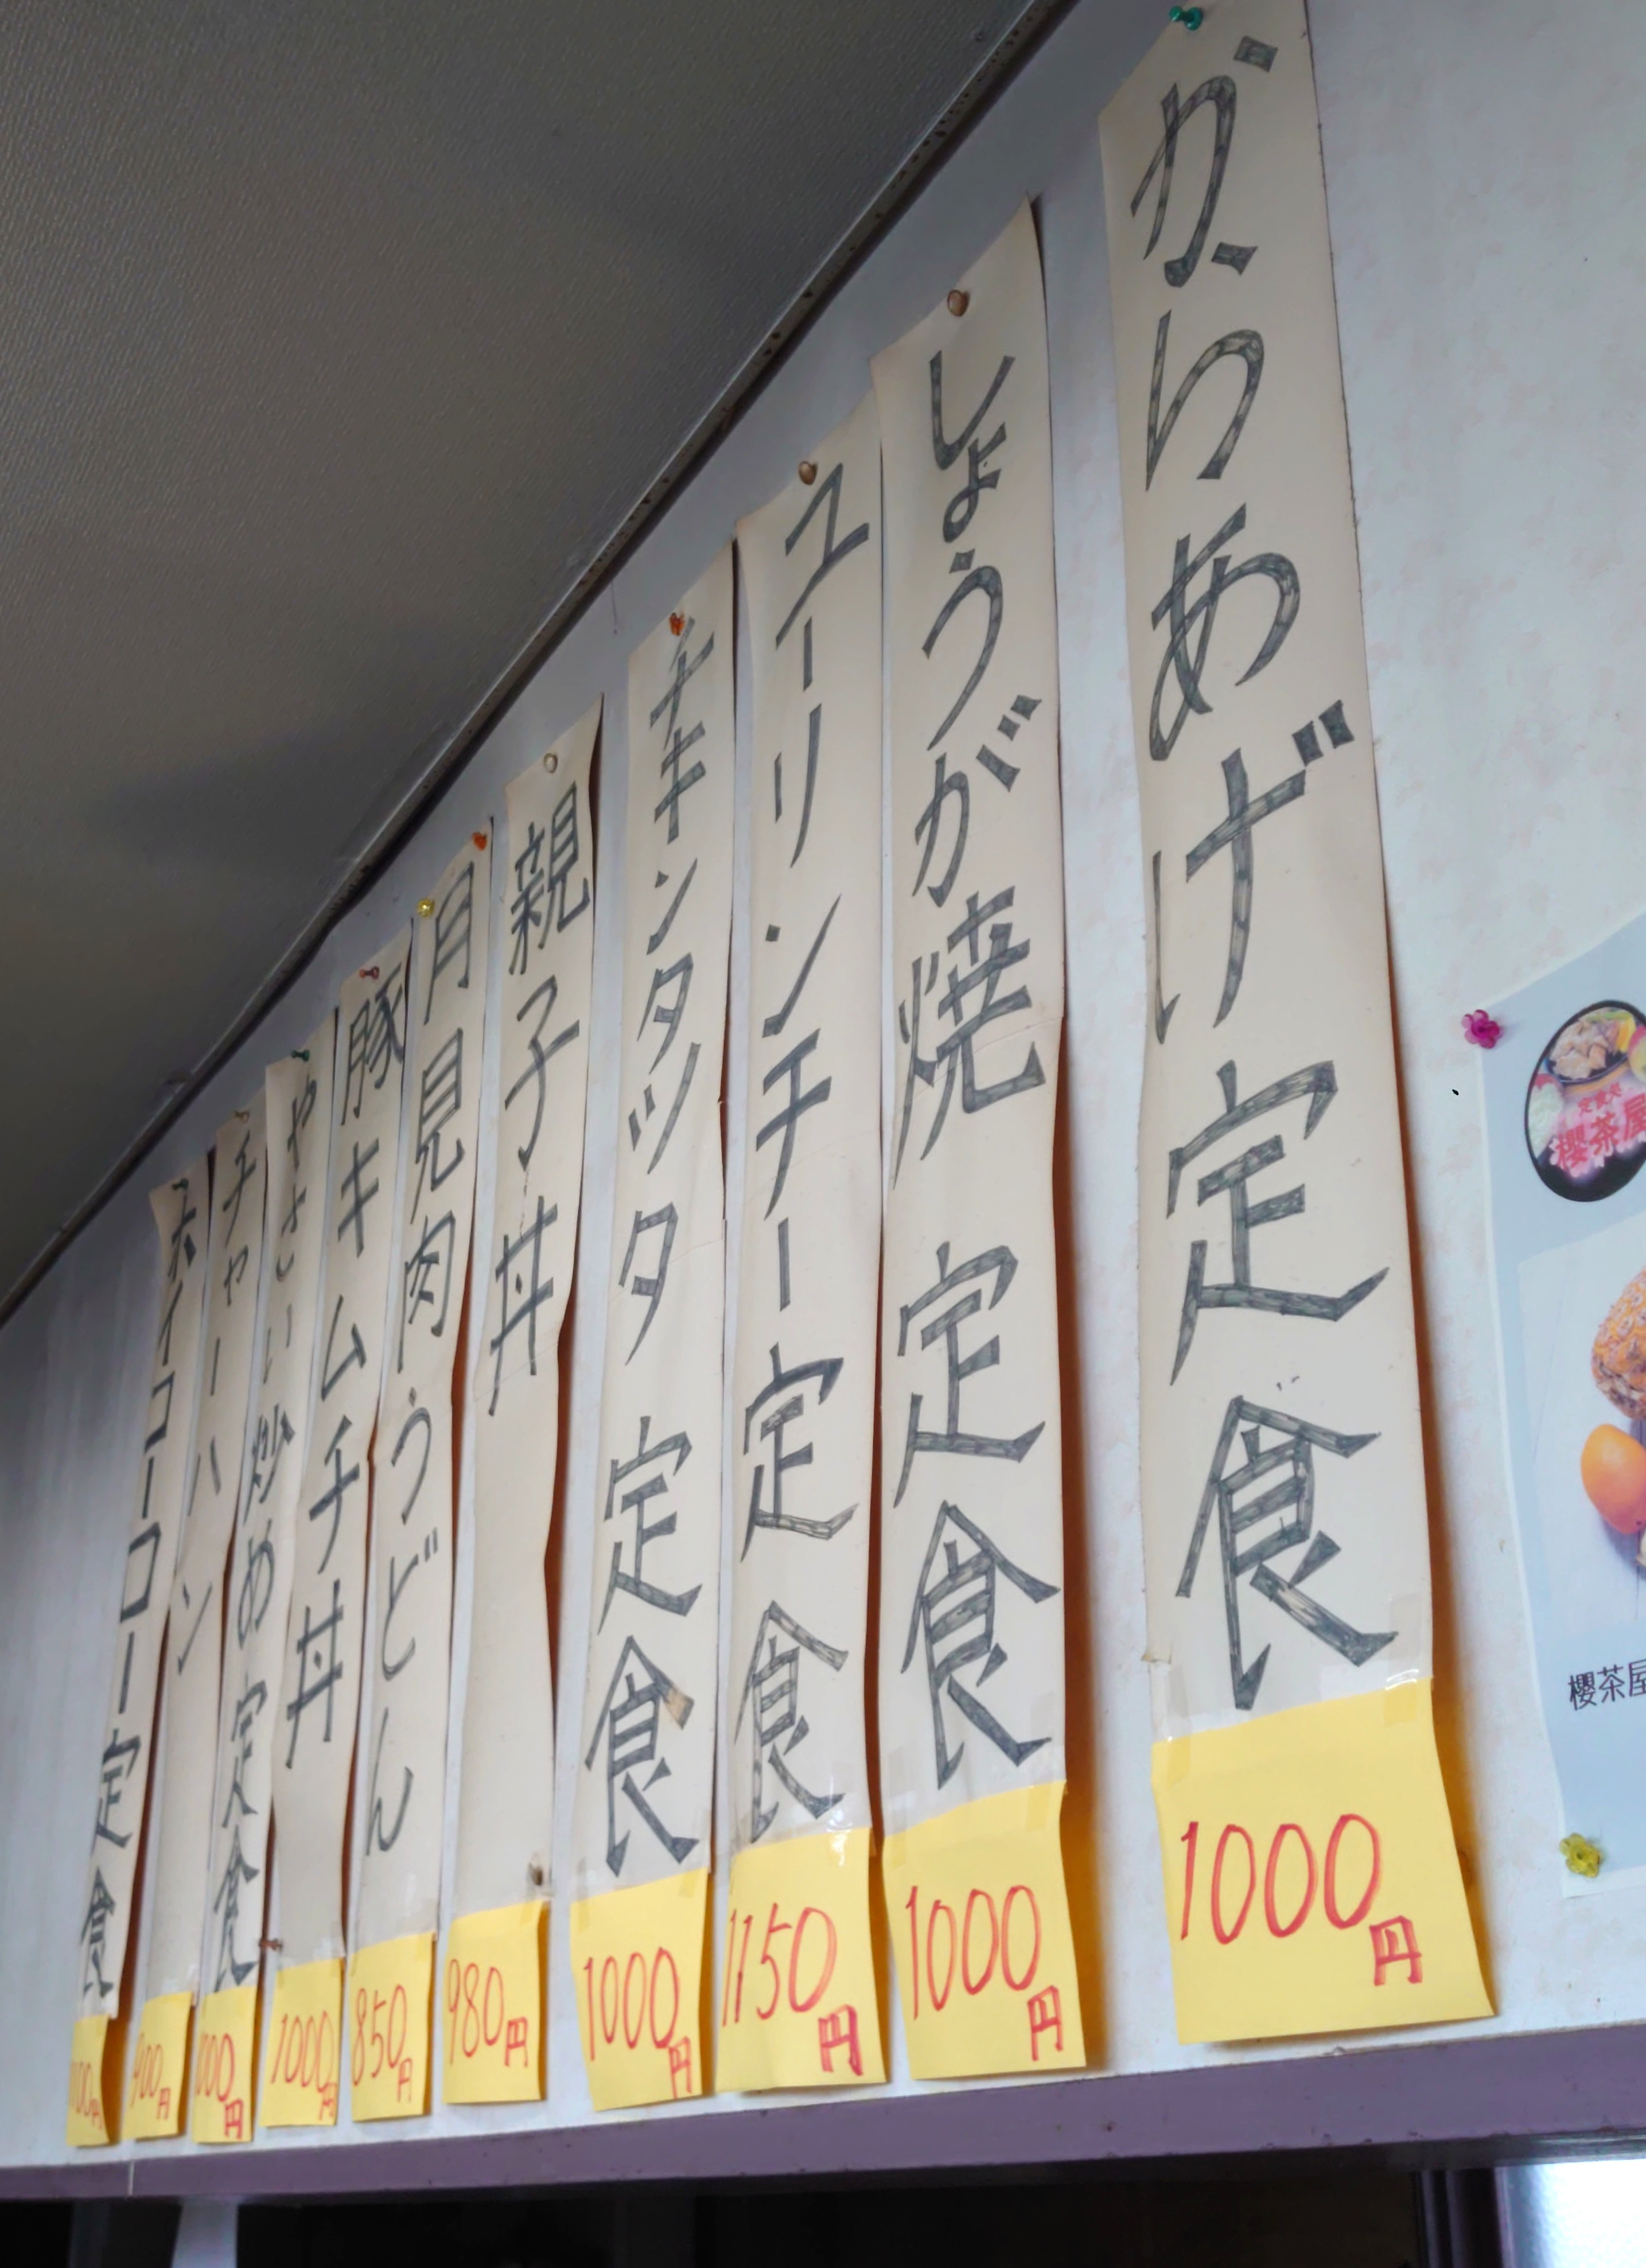 からあげ定食
1000円
しょうが焼 定食
1000円
ユーリンチー定食
1150円
チキンタツタ 定食
1000円
親子丼
980円
月見肉うどん
850円
豚キムチ丼
1000円
やさい炒め定食
1000円
チャーハン
900円
ホイコーロー定食
定食処
櫻茶屋
櫻茶屋